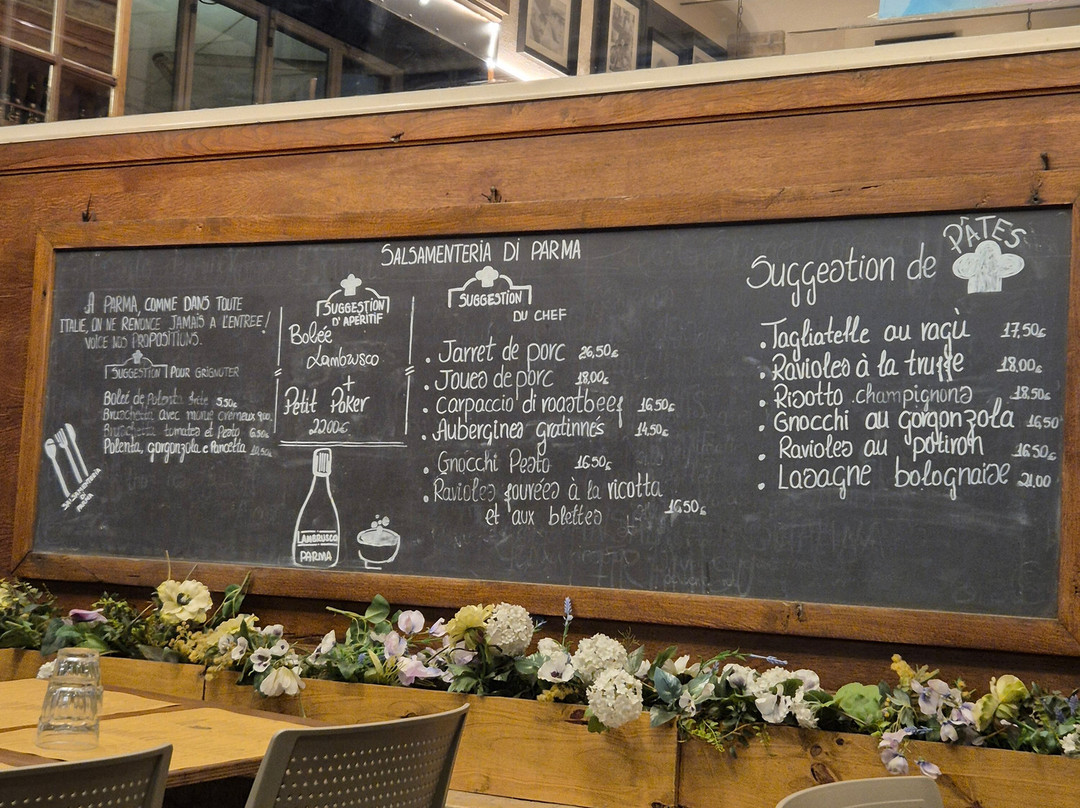 SALSAMENTERIA DI PARMA
A PARMA, COMME DANS TOUTE
ITALIE, ON NE RENONCE JAMAIS A L'ENTREE!
VOICE NOS PROPOSITIONS.
SUGGESTION POUR GRIGNOTER
Bolet de Polenta frite 5.50€
Bruschetta avec morue crémeux 9,00
Bruschetta tomates et Pesto 6.50€
Polenta, gorgonzola e Pancetta
SALSAMENTERIA
DI
PARMA
SUGGESTION
D'APERITIF
Bolée
Lambrusco
+
Petit Poker
22.00€
LAMBRUSCO
PARMA
SUGGESTION
DU CHEF
. Jarret de porc 26,50€
. Joues de porc 18,00€
. Carpaccio di roastbeef 16,50€
. Aubergines gratinnés 14,50€
. Gnocchi Pesto 16.50€
. Ravioles fourées à la ricotta
et aux blettes 16.50€
Suggestion de PÂTES
. Tagliatelle au ragù 17,50€
. Ravioles à la truffe 18,00€
. Risotto champignons 18,50€
. Gnocchi au gorgonzola 16,50
. Ravioles au potiron 16,50€
. Lasagne bolognaise 21,00